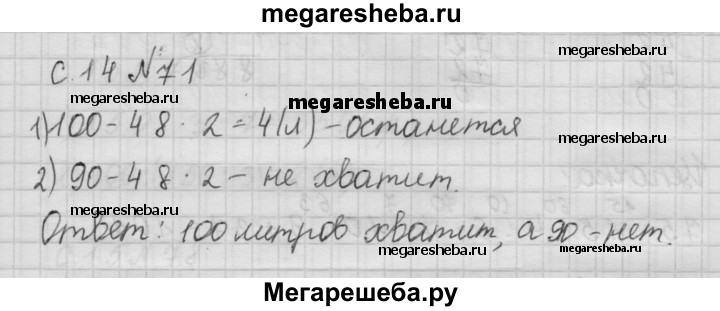 megaresheba.ru
megaresheba.ru
с. 14 №71
megaresheba.ru megaresheba.ru
1) 100 - 48 · 2 = 4(л) - останется
megaresheba.ru megaresheba.ru
2) 90 - 48 · 2 - не хватит.
Ответ: 100 литров хватит, а 90 - нет.
megaresheba.ru megaresheba.ru
Мегарешеба.ру